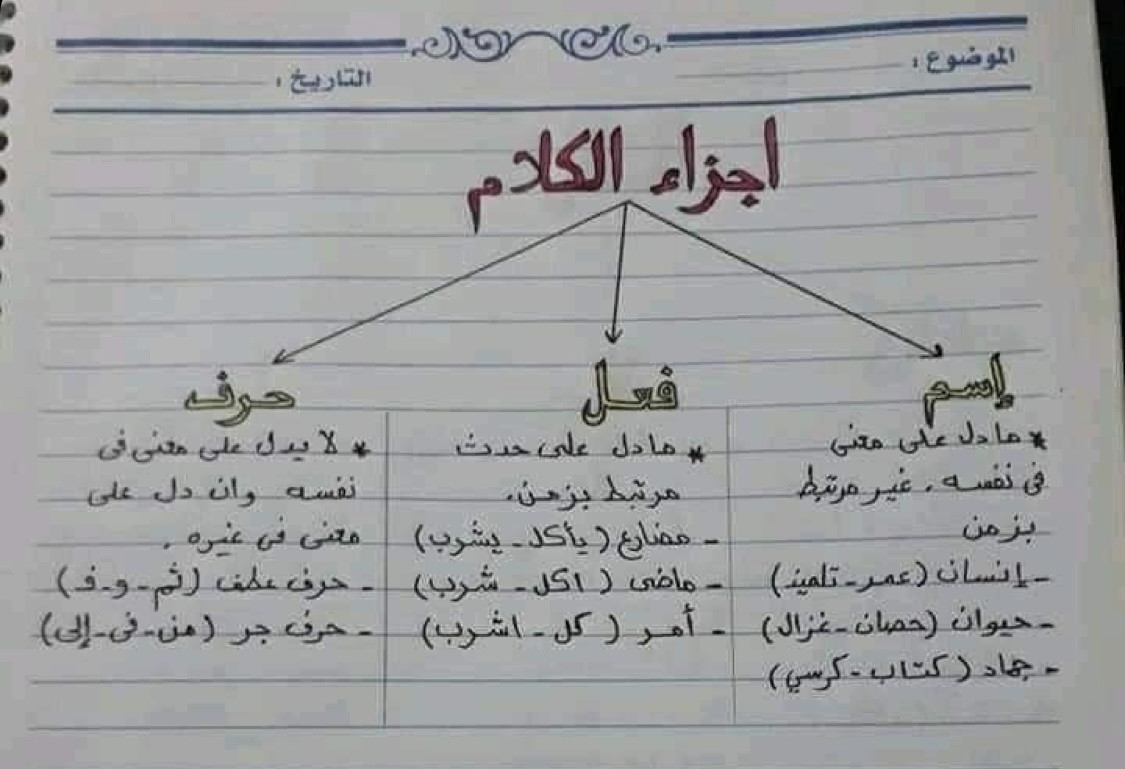 الموضوع :
التاريخ :
اجزاء الكلام
إسم
* مادل على معنى
فى نفسه . غير مرتبط
بزمن
- إنسان (عمر - تلميذ)
- حيوان (حصان - غزال)
- جماد (كتاب - كرسي)
فعل
* مادل على حدث
مرتبط بزمن.
- مضارع (يأكل - يشرب)
- ماضى (اكل - شرب)
- أمر (كل - اشرب)
حرف
* لا يدل على معنى فى
نفسه وان دل على
معنى فى غيره .
- حرف عطف (ثم - و - ف)
- حرف جر (من - فى - إلى)